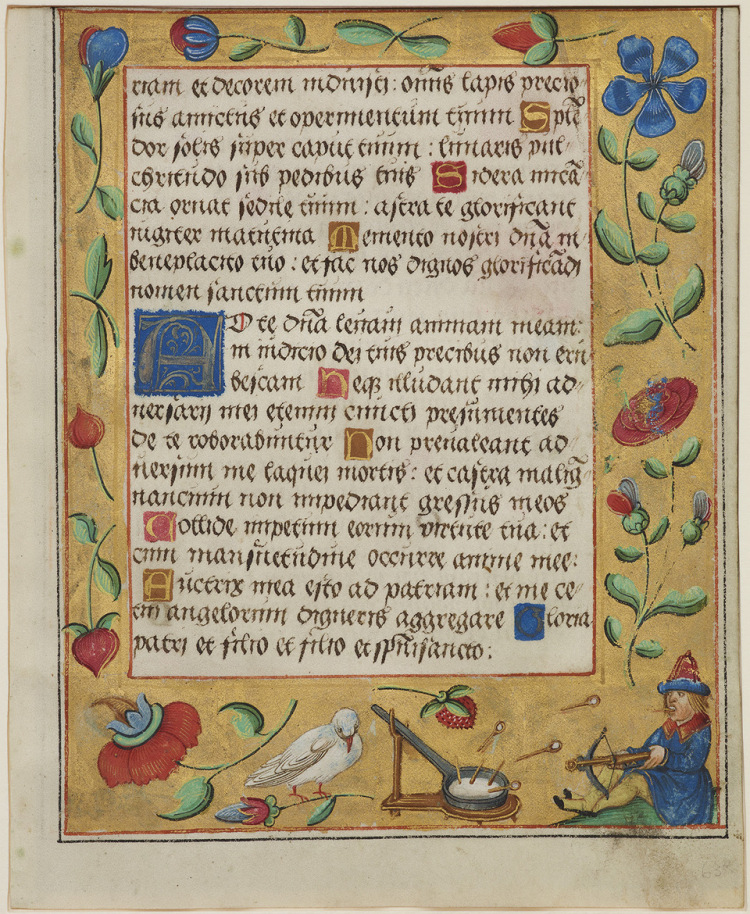 riam et decorem induisti : om̄s lapis precio-
sus amictus et operimentum tuum Splē
dor solis super caput tuum : lunaris pul-
chritudo sub pedibus tuis Sidera micā
cia ornat sedile tuum : astra te glorificant
iugiter matutina Memento nostri dn̄a in
beneplacito tuo : et fac nos dignos glorificādi
nomen sanctum tuum
AD te dn̄a leuaui animam meam:
in iudicio dei tuis precibus non eru
bescam Neqȝ illudant michi ad-
uersarij mei etenim cuncti presumentes
de te roborabuntur Non preualeant ad-
uersum me laquei mortis : et castra malig-
nancium non impediant gressus meos
Collide impetum eorum virtute tua : et
cum mansuetudine occurre anime mee:
Auctrix mea esto ad patriam : et me ce-
tui angelorum digneris aggregare Gloria
patri et filio et filio et spūisancto :